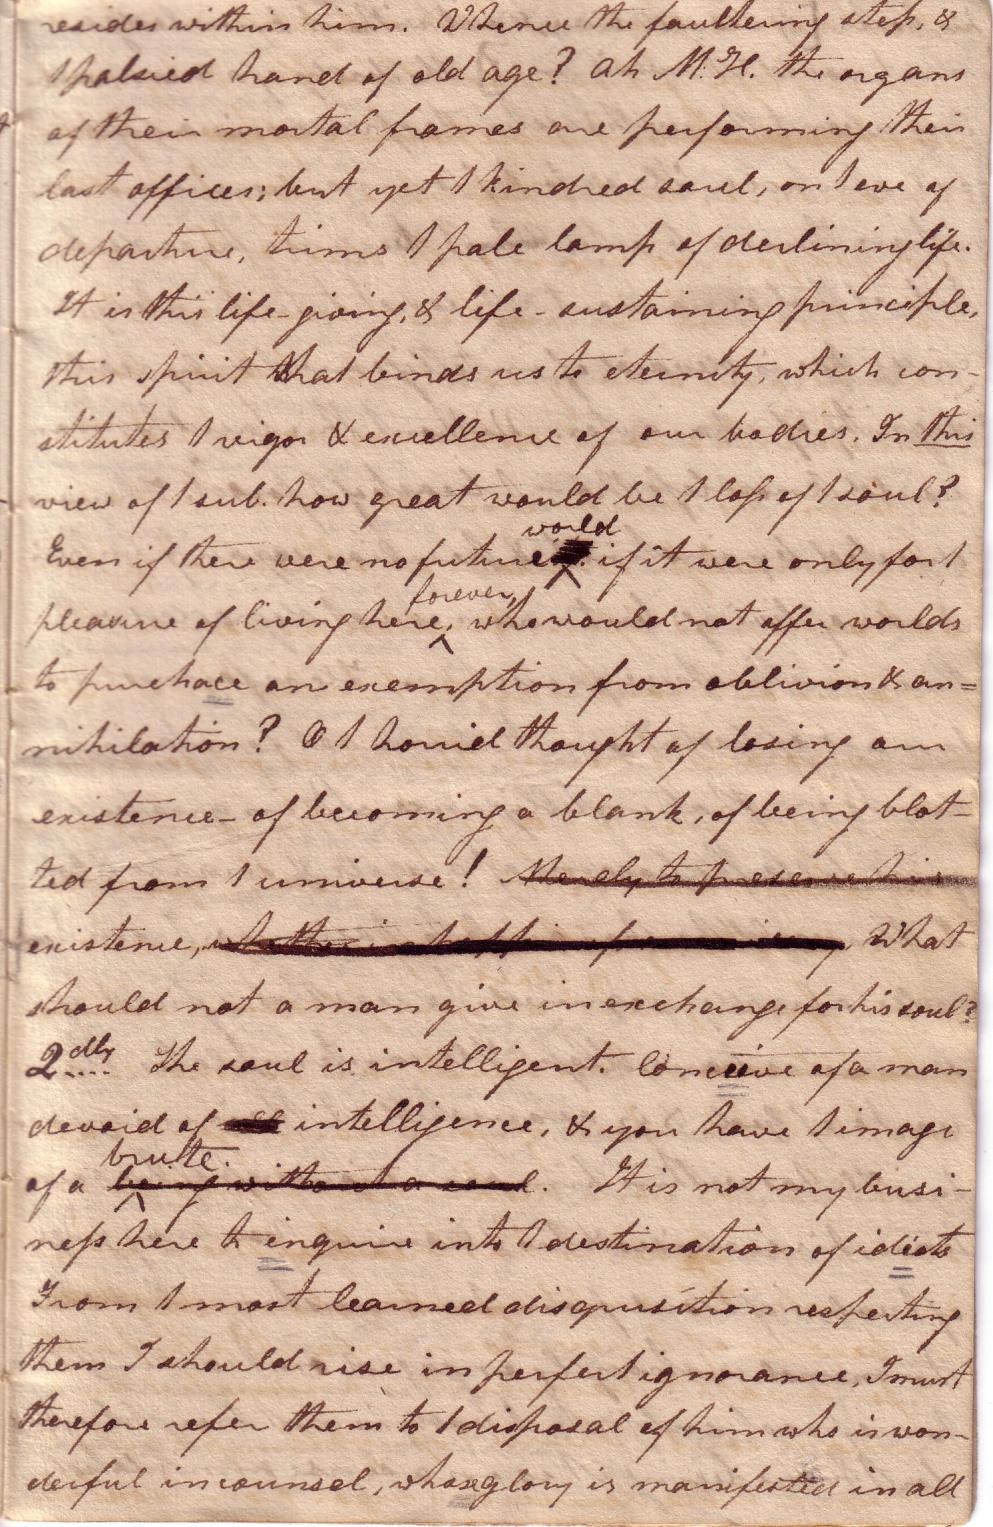 resides within him. Whence the faultering step, &
1 palsied hand of old age? Ah M.H. the organs
of their mortal frames are performing their
last offices; but yet 1 kindred soul, on 1 eve of
departure, trims 1 pale lamp of declining life.
It is this life-giving, & life-sustaining principle,
this spirit that binds us to eternity, which con-
stitutes 1 vigor & excellence of our bodies. In this
view of 1 sub. how great would be 1 loss of 1 soul?
world
Even if there were no future if it were only for 1
forever,
pleasure of living here, who would not offer worlds
to purchace an exemption from oblivion & an=
nihilation? O 1 horrid thought of losing our
existence - of becoming a blank, of being blot-
ted from 1 universe! Merely to preserve his
existence, What
should not a man give in exchange for his soul?
2dly The soul is intelligent. Conceive of a man
devoid of all intelligence, & you have 1 image
brute.
of a being without a soul. It is not my busi-
ness here to inquire into 1 destination of idiots
From 1 most learned disqusition respecting
them I should rise in perfect ignorance, I must
therefore refer them to 1 disposal of him who is won-
derful in counsel, whose glory is manifested in all